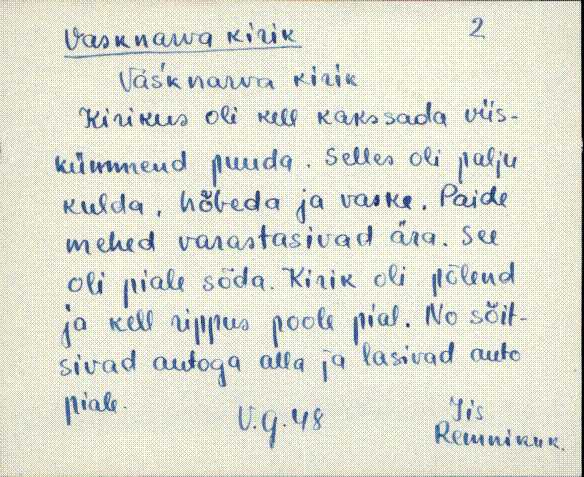 Vasknarva kirik
2
Vásknarva kirik
Kirikus oli kell kakssada viis-
kümmend puuda. Selles oli palju
kulda, hõbeda ja vaske. Paide
mehed varastasivad ära. See
oli piale sõda. Kirik oli põlend
ja kell rippus poole pial. No sõit-
sivad autoga alla ja lasivad auto
piale.
V.g.48
Iis
Remnikuk.